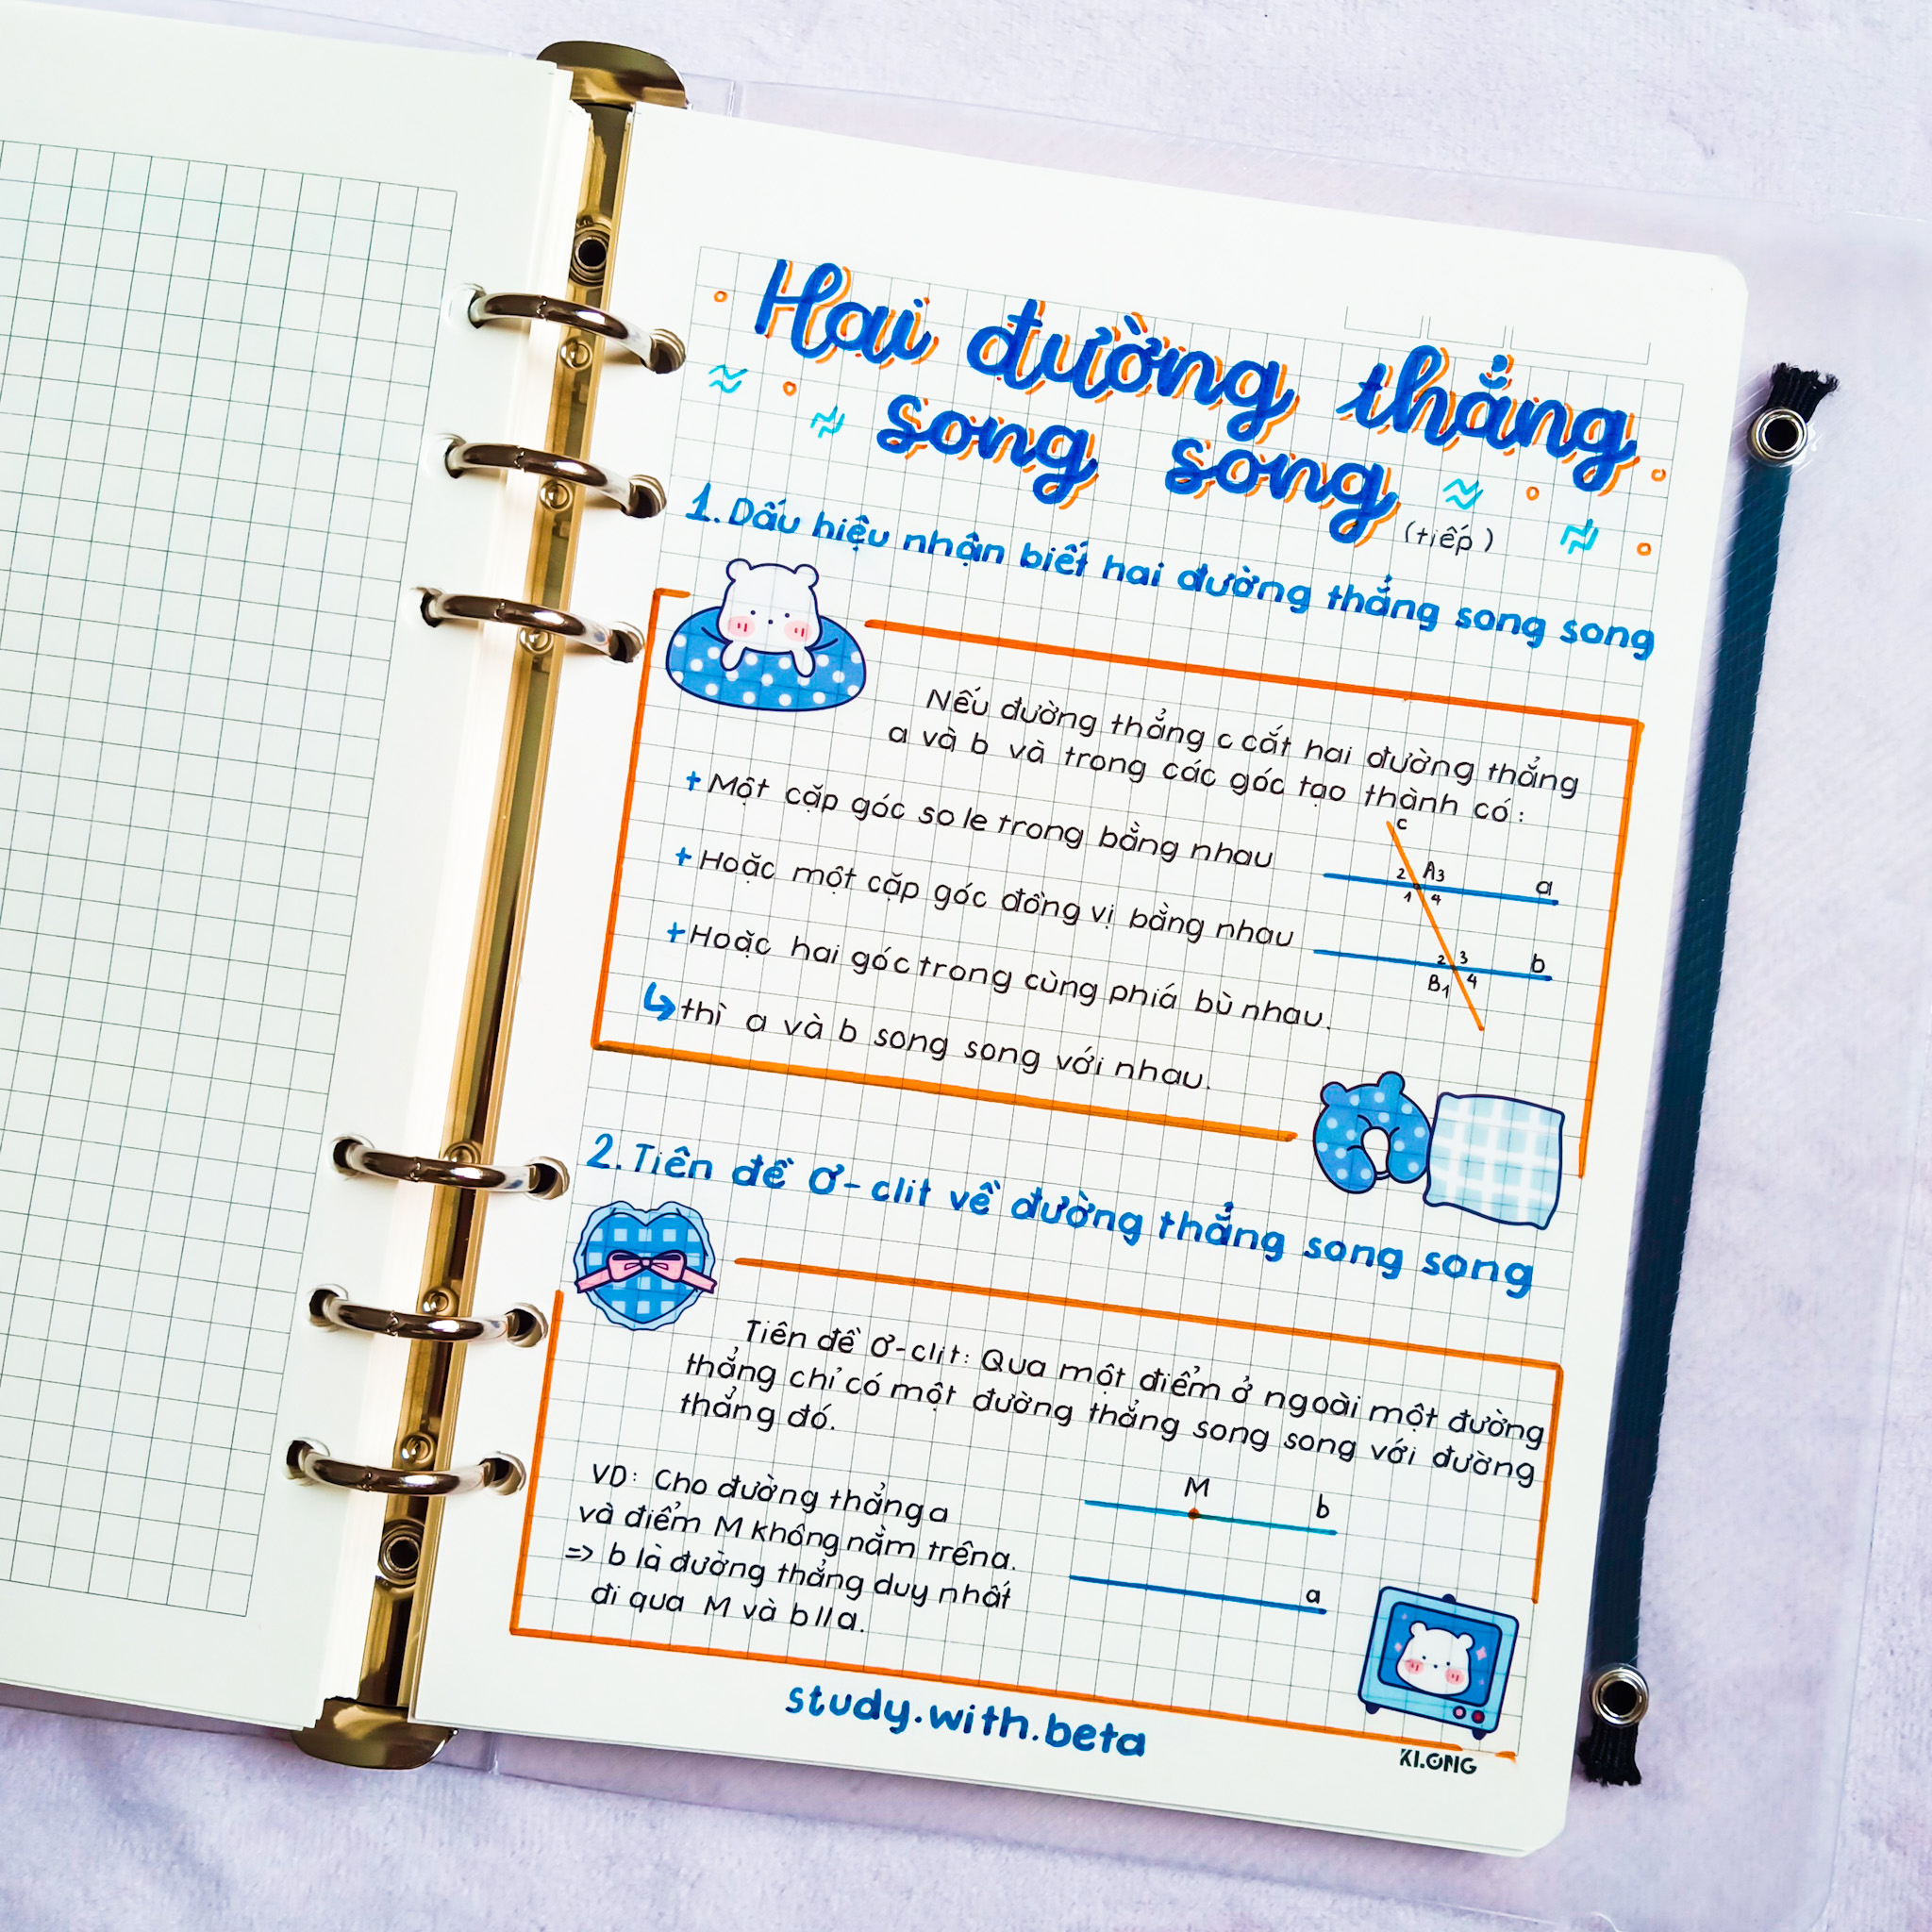 Hai đường thẳng
song song
(tiếp)
1. Dấu hiệu nhận biết hai đường thẳng song song
Nếu đường thẳng c cắt hai đường thẳng
a và b và trong các góc tạo thành có:
+ Một cặp góc so le trong bằng nhau
+ Hoặc một cặp góc đồng vị bằng nhau
+ Hoặc hai góc trong cùng phiá bù nhau.
↳ thì a và b song song với nhau.
c
2 A3 a
1 4
2 3 b
B1 4
2. Tiên đề Ơ-clit về đường thẳng song song
Tiên đề Ơ-clit: Qua một điểm ở ngoài một đường
thẳng chỉ có một đường thẳng song song với đường
thẳng đó.
VD: Cho đường thẳng a
và điểm M không nằm trên a.
=> b là đường thẳng duy nhất
đi qua M và b // a.
M b
a
study.with.beta
KI.ONG